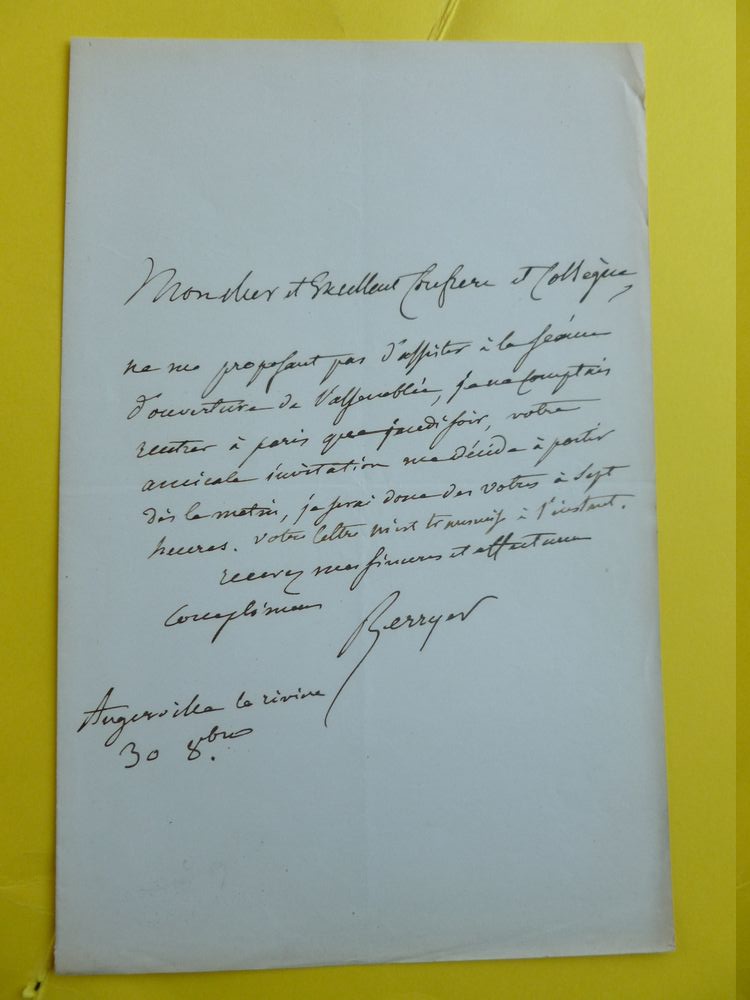 Mon cher et Excellent Confrere et Collègue,
ne me proposant pas d'assister à la séance
d'ouverture de l'assemblée, je ne comptais
rentrer à paris que jeudi soir, votre
amicale invitation me décide à partir
dès le matin, je serai donc des votres à sept
heures. votre lettre m'est transmise à l'instant.
recevez mes sinceres et affectueux
complimens
Berryer
Angerville la riviere
30 8bre